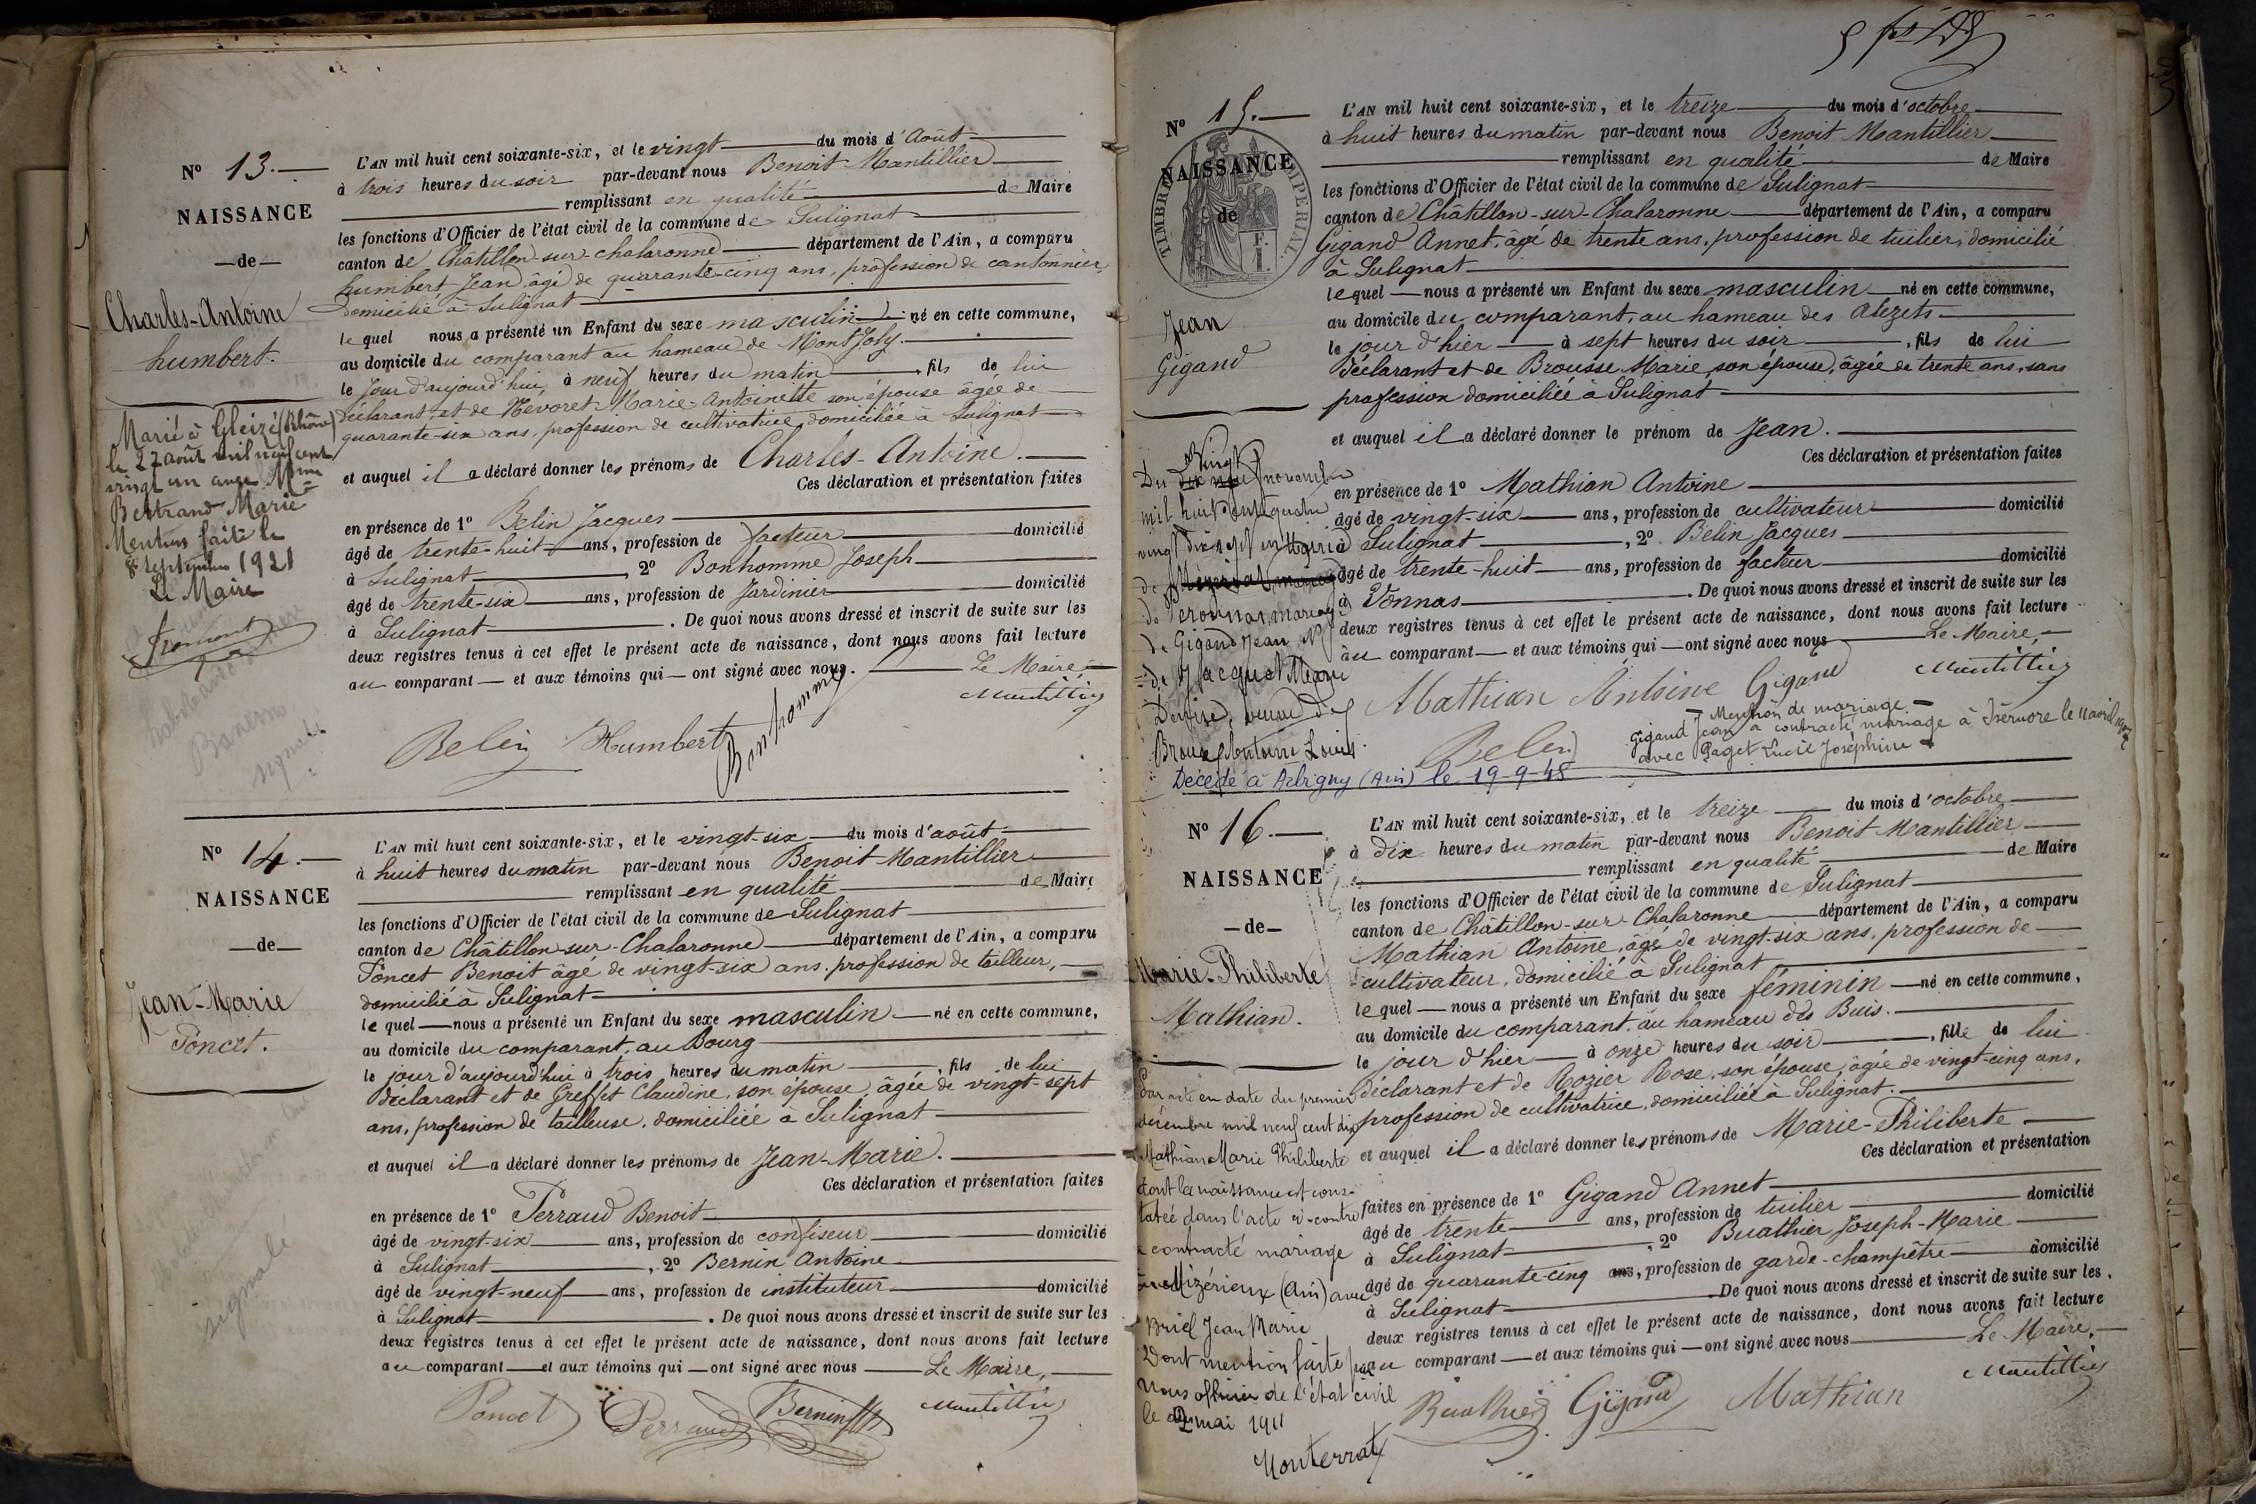 N° 13.
NAISSANCE
—de—
Charles-Antoine
humbert.
Marié à Gleizé (Rhône)
le 27 août mil neuf cent
vingt un avec Mme
Bertrand Marie
Mention faite le
8 septembre 1921
Le Maire
Fromont
L'AN mil huit cent soixante-six, et le vingt du mois d'Août
à trois heures du soir par-devant nous Benoit Mantillier
remplissant en qualité de Maire
les fonctions d'Officier de l'état civil de la commune de Sulignat
canton de Chatillon-sur-chalaronne département de l'Ain, a comparu
humbert Jean, âgé de quarante-cinq ans, profession de cantonnier,
domicilié à Sulignat
lequel nous a présenté un Enfant du sexe masculin né en cette commune,
au domicile du comparant au hameau de MontJoly.
le jour d'aujourd'hui, à neuf heures du matin, fils de lui
déclarant et de Névoret Marie-Antoinette son épouse âgée de
quarante-six ans, profession de cultivatrice domiciliée à Sulignat
et auquel il a déclaré donner les prénoms de Charles-Antoine.
Ces déclaration et présentation faites
en présence de 1° Belin Jacques
âgé de trente-huit ans, profession de facteur domicilié
à Sulignat, 2° Bonhomme Joseph
âgé de trente-six ans, profession de Jardinier domicilié
à Sulignat. De quoi nous avons dressé et inscrit de suite sur les
deux registres tenus à cet effet le présent acte de naissance, dont nous avons fait lecture
au comparant — et aux témoins qui — ont signé avec nous. Le Maire,
Mantillier
Belin Humbert Bonhomme
N° 14.
NAISSANCE
—de—
Jean-Marie
Poncet.
signalé
L'AN mil huit cent soixante-six, et le vingt-six du mois d'août
à huit heures du matin par-devant nous Benoit Mantillier
remplissant en qualité de Maire
les fonctions d'Officier de l'état civil de la commune de Sulignat
canton de Châtillon-sur-Chalaronne département de l'Ain, a comparu
Poncet Benoit âgé de vingt-six ans, profession de tailleur,
domicilié à Sulignat
lequel — nous a présenté un Enfant du sexe masculin — né en cette commune,
au domicile du comparant, au Bourg
le jour d'aujourd'hui à trois heures du matin, fils de lui
déclarant et de Greffet Claudine, son épouse, âgée de vingt-sept
ans, profession de tailleuse, domiciliée à Sulignat
et auquel il a déclaré donner les prénoms de Jean-Marie.
Ces déclaration et présentation faites
en présence de 1° Perraud Benoit
âgé de vingt-six ans, profession de confiseur domicilié
à Sulignat, 2° Bernin Antoine
âgé de vingt-neuf ans, profession de instituteur domicilié
à Sulignat. De quoi nous avons dressé et inscrit de suite sur les
deux registres tenus à cet effet le présent acte de naissance, dont nous avons fait lecture
au comparant — et aux témoins qui — ont signé avec nous Le Maire,
Poncet Perraud Bernin Mantillier
N° 15.
TIMBRE IMPERIAL
NAISSANCE
de
Jean
Gigand
Vingt
Du dix neuf novembre
mil huit cent quatre
vingt dix sept en Mairie
de Mézériat, mariage
de Péronnas, mariage
de Gigand Jean
et de Jacquet Marie
Denise, veuve de
Broux Antoine Louis.
Décédé à Arbigny (Ain) le 19-9-48
L'AN mil huit cent soixante-six, et le treize du mois d'octobre
à huit heures du matin par-devant nous Benoit Mantillier
remplissant en qualité de Maire
les fonctions d'Officier de l'état civil de la commune de Sulignat
canton de Châtillon-sur-Chalaronne département de l'Ain, a comparu
Gigand Annet, âgé de trente ans, profession de tuilier, domicilié
à Sulignat
lequel — nous a présenté un Enfant du sexe masculin — né en cette commune,
au domicile du comparant, au hameau des Alezets
le jour d'hier — à sept heures du soir, fils de lui
déclarant et de Brousse Marie, son épouse, âgée de trente ans, sans
profession domiciliée à Sulignat
et auquel il a déclaré donner le prénom de Jean.
Ces déclaration et présentation faites
en présence de 1° Mathian Antoine
âgé de vingt-six ans, profession de cultivateur domicilié
à Sulignat, 2° Belin Jacques
âgé de trente-huit ans, profession de facteur domicilié
à Vonnas. De quoi nous avons dressé et inscrit de suite sur les
deux registres tenus à cet effet le présent acte de naissance, dont nous avons fait lecture
au comparant — et aux témoins qui — ont signé avec nous Le Maire,
Mathian Antoine Gigand Mantillier
Belin
Mention de mariage
Gigand Jean a contracté mariage à Izernore le 11 avril
avec Paget Lucie Joséphine
N° 16.
NAISSANCE
—de—
Marie-Philiberte
Mathian.
Par acte en date du premier
décembre mil neuf cent dix
Mathian Marie Philiberte
dont la naissance est cons-
tatée dans l'acte ci-contre
a contracté mariage
à Mizérieux (Ain) avec
Briel Jean Marie
Dont mention faite par
nous officier de l'état civil
le 2 mai 1911
Monterrat
L'AN mil huit cent soixante-six, et le treize du mois d'octobre
à dix heures du matin par-devant nous Benoit Mantillier
remplissant en qualité de Maire
les fonctions d'Officier de l'état civil de la commune de Sulignat
canton de Châtillon-sur-Chalaronne département de l'Ain, a comparu
Mathian Antoine, âgé de vingt-six ans, profession de
cultivateur, domicilié à Sulignat
lequel — nous a présenté un Enfant du sexe féminin — né en cette commune,
au domicile du comparant, au hameau des Buis.
le jour d'hier — à onze heures du soir, fille de lui
déclarant et de Rozier Rose, son épouse, âgée de vingt-cinq ans,
profession de cultivatrice, domiciliée à Sulignat.
et auquel il a déclaré donner les prénoms de Marie-Philiberte
Ces déclaration et présentation
faites en présence de 1° Gigand Annet
âgé de trente ans, profession de tuilier domicilié
à Sulignat, 2° Buathier Joseph-Marie
âgé de quarante-cinq ans, profession de garde-champêtre domicilié
à Sulignat. De quoi nous avons dressé et inscrit de suite sur les
deux registres tenus à cet effet le présent acte de naissance, dont nous avons fait lecture
au comparant — et aux témoins qui — ont signé avec nous Le Maire,
Buathier Gigand Mathian Mantillier